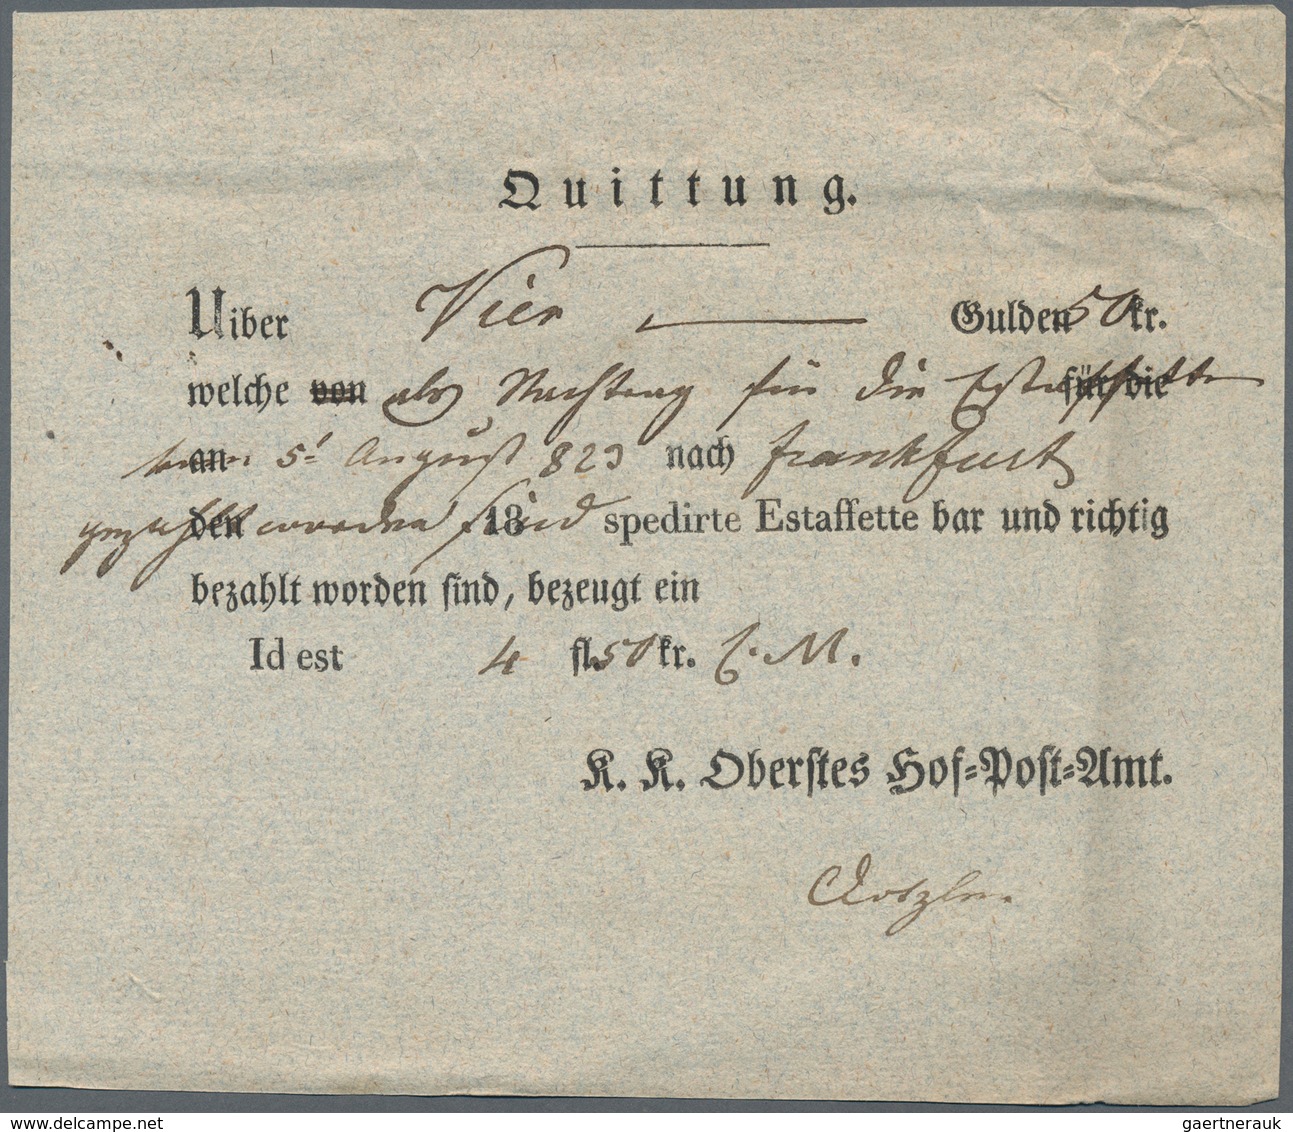 Quittung.
Uiber Vier Gulden 50 kr.
welche von als Nachtrag für die Estaffette für die
an vom 5t August 823 nach Frankfurt
den gezahlt worden sind 18 spedirte Estaffette bar und richtig
bezahlt worden sind, bezeugt ein
Id est 4 fl. 50 kr. C. M.
K. K. Oberstes Hof-Post-Amt.
gaertnerauk